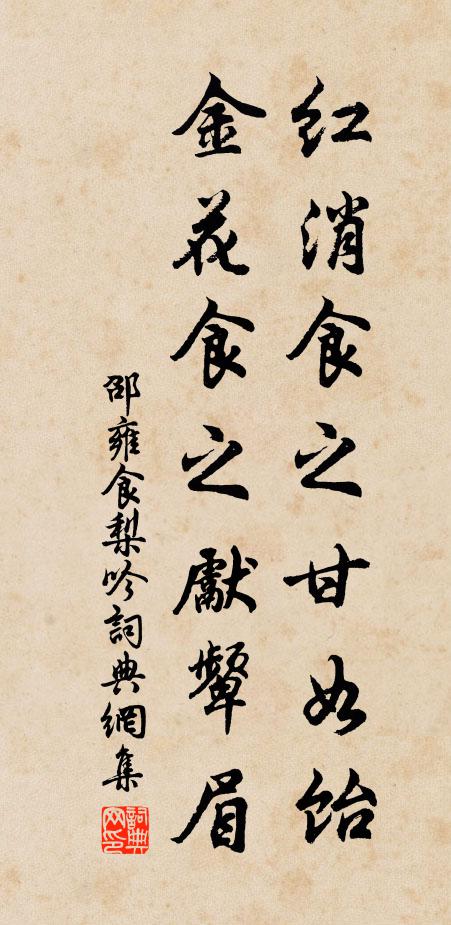 红消食之甘如饴
金花食之獻顰眉
邵雍食梨吟詞典網集
詞典网印